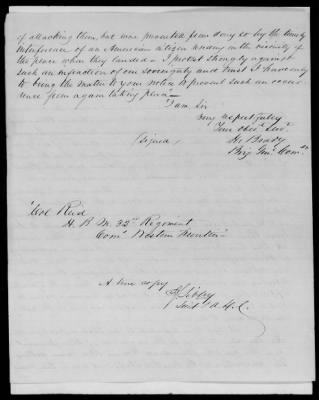 of attacking them, but were prevented from doing so by the timely
interference of an American citizen residing in the vicinity of
the place where they landed – I protest strongly against
such an infraction of our sovereignty and trust I have only
to bring the matter to your notice to prevent such an occur
rence from again taking place –
I am Sir
Very respectfully
Your Obt Servt
H. Brady
Brig Genl Comg
(Signed)
Col Reid
H. B. M. 32d Regiment
Comg Western Frontier
A true copy
Sibley